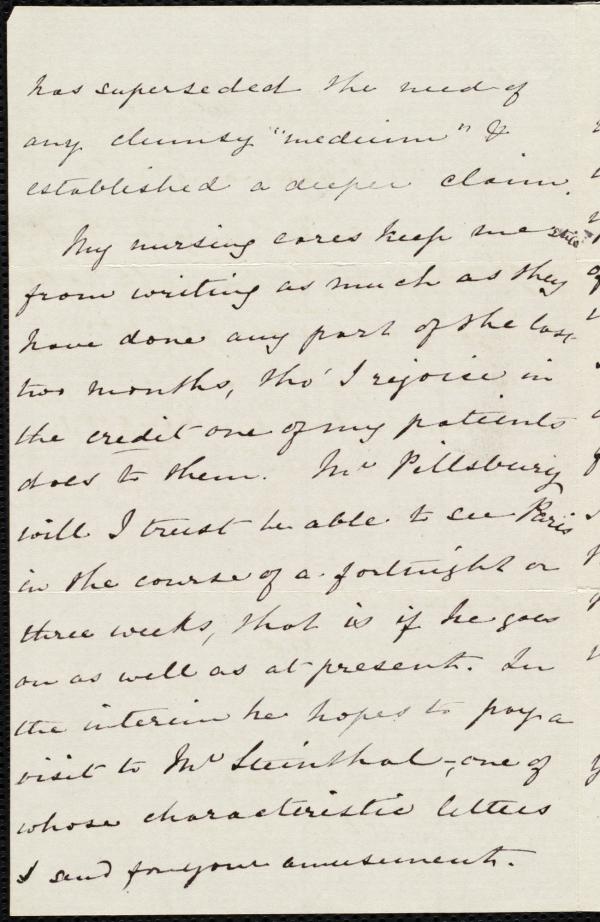 has superseded the need of
any clumsy "medium" &
established a deeper claim.
My nursing cares keep me still
from writing as much as they
have done any part of the last
two months, tho' I rejoice in
the credit one of my patients
does to them. Mr Pillsbury
will I trust be able to see Paris
in the course of a fortnight or
three weeks, that is if he goes
on as well as at present. In
the interim he hopes to pay a
visit to Mr Steinthal -, one of
whose characteristic letters
I send for your amusement.